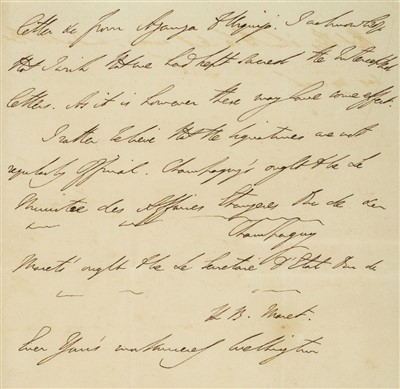 Letter &c from Azanza & Urquijo. I acknowledge
that I wish that we had kept sacred the Intercepted
letters. As it is however these may have some effect.
I rather believe that the signatures are not
regularly official. Champagny's ought to be Le
Ministre des Affaires Etrangeres Duc de
Champagny
Maret's ought to be Le Secretaire d'Etat Duc de
H B. Maret.
Ever Yours most sincerely Wellington